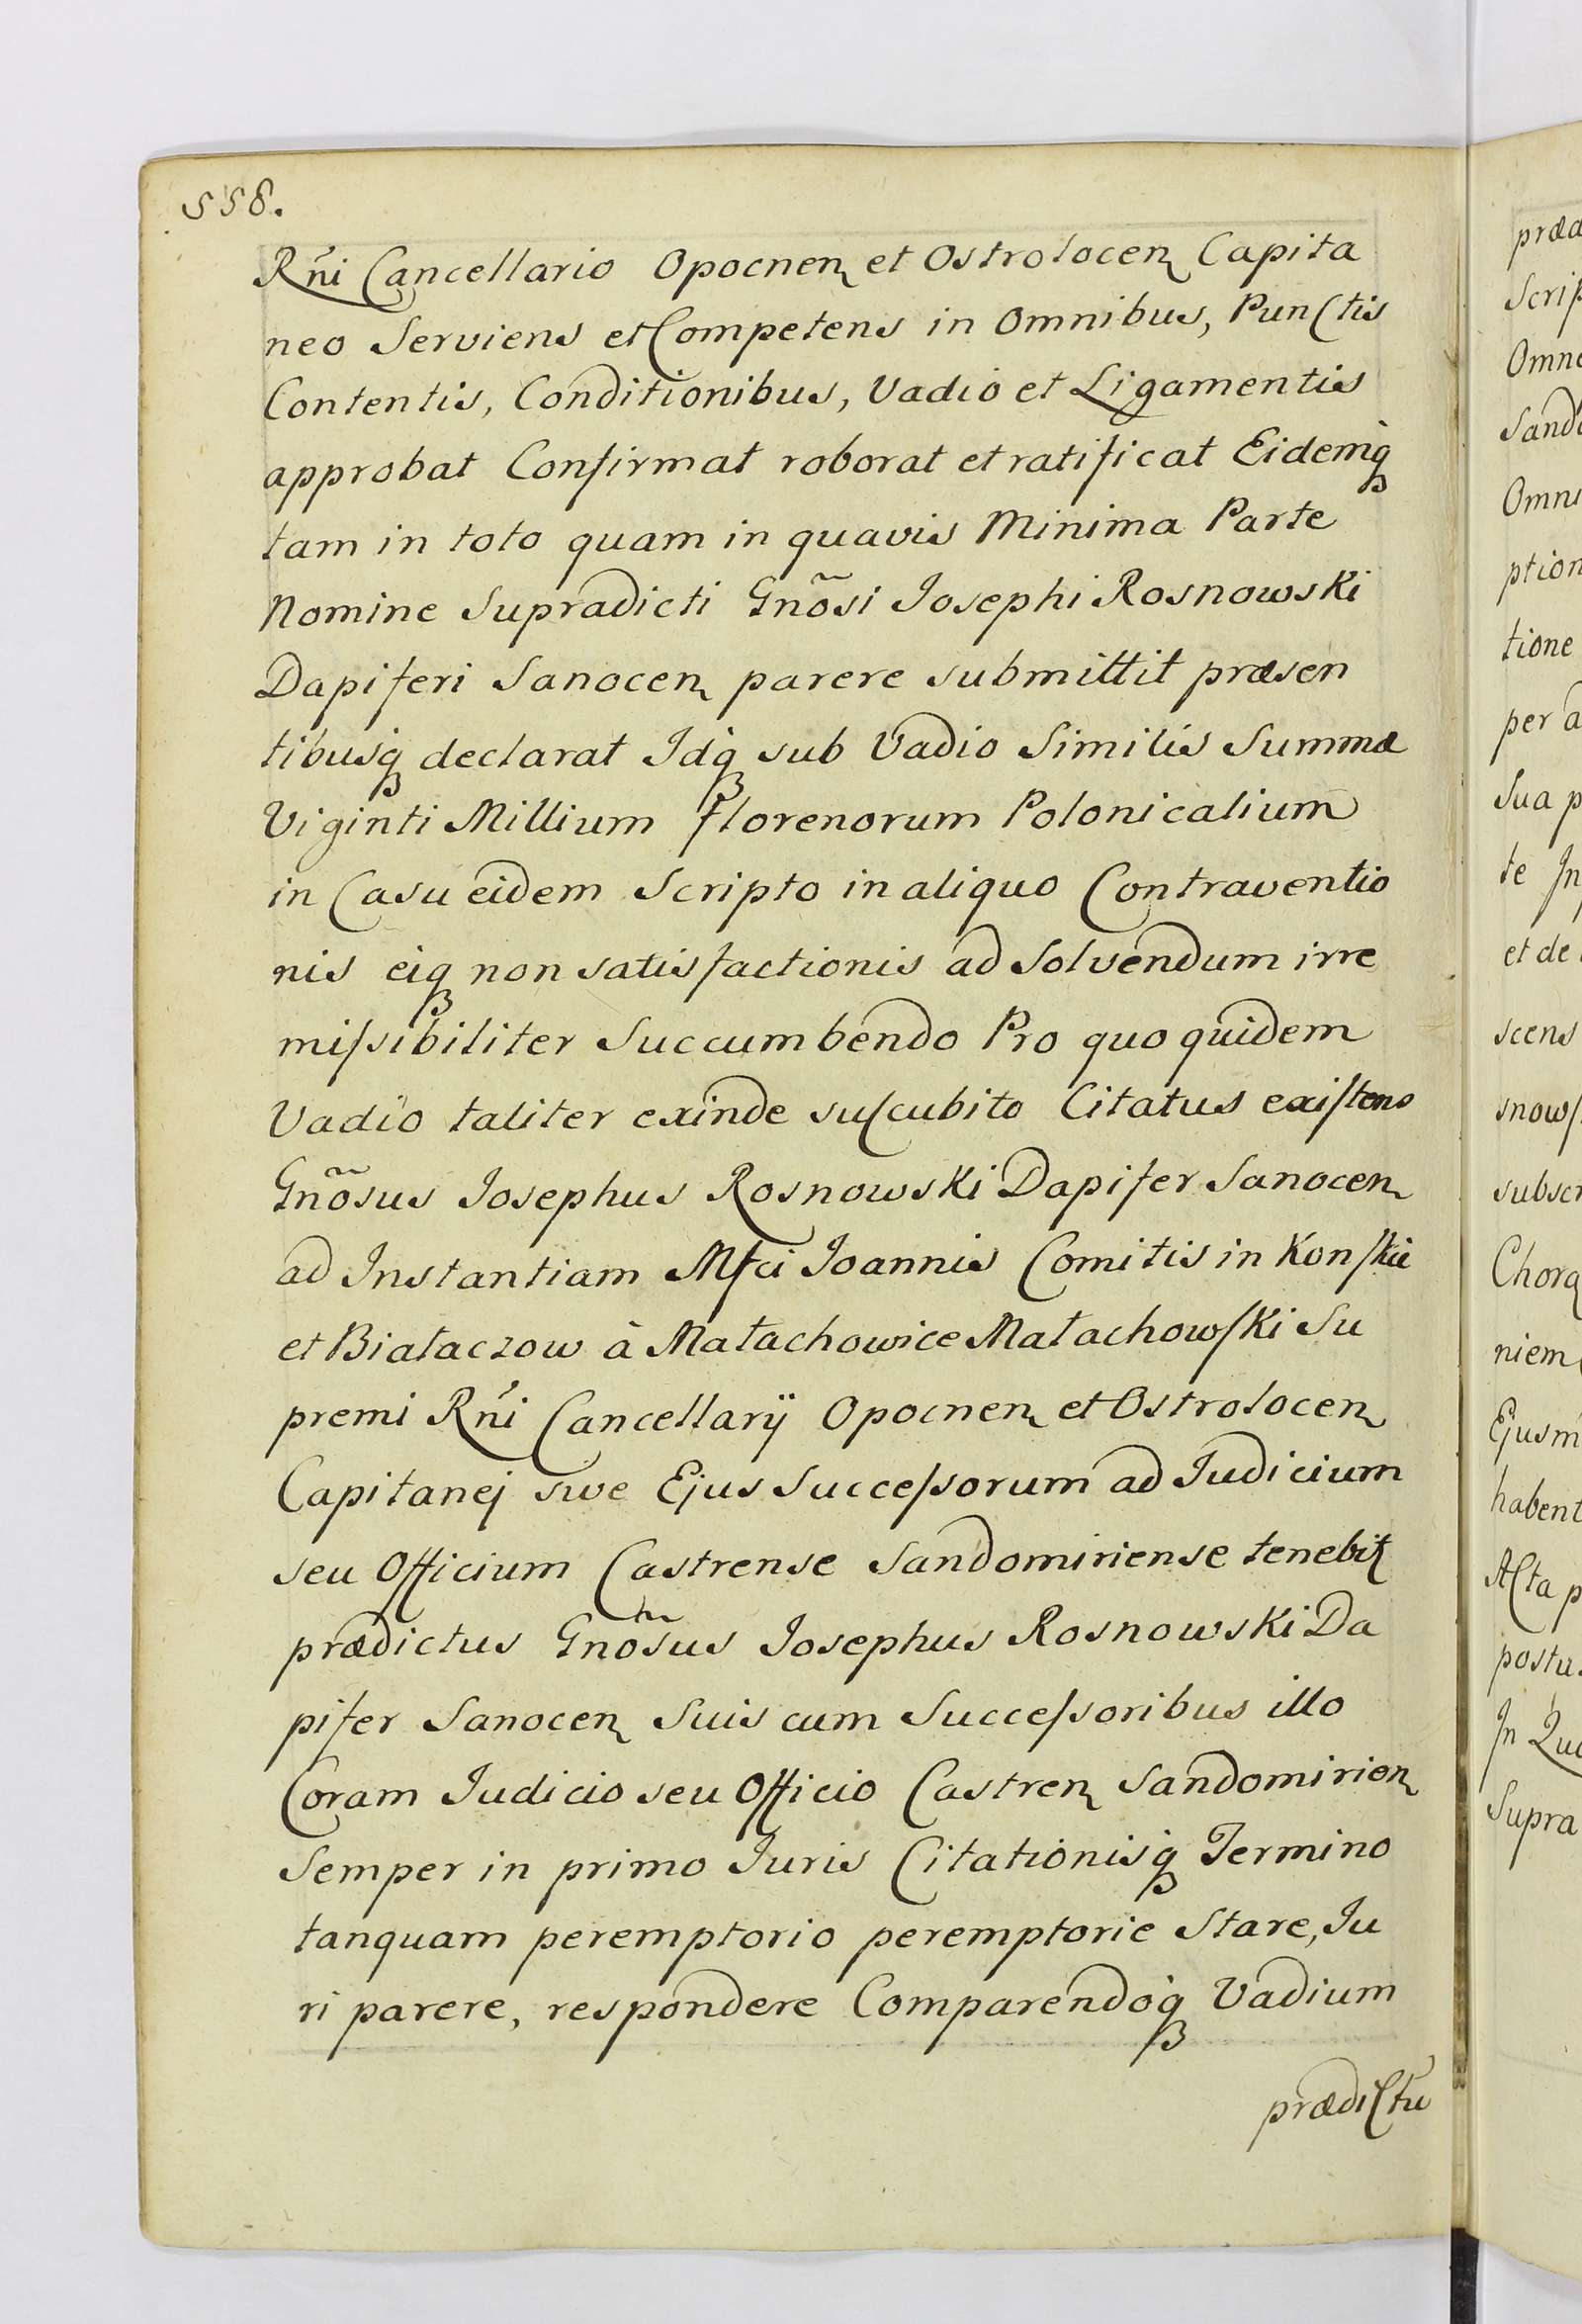 558.
Rńi Cancellario Opocnen et Ostrolocen Capita
neo Serviens et Competens in Omnibus, Punctis
Contentis, Conditionibus, Vadio et Ligamentis
approbat Confirmat roborat et ratificat Eidemq
tam in toto quam in quavis Minima Parte
Nomine Supradicti Gnõsi Josephi Rosnowski
Dapiferi Sanocen parere submittit præsen
tibusq declarat Idq sub Vadio Similis Summæ
Viginti Millium Florenorum Polonicalium
in Casu eidem Scripto in aliquo Contraventio
nis eiq non satisfactionis ad Solvendum irre
miſsibiliter Succumbendo Pro quo quidem
Vadio taliter exinde suſcubito Citatus exiſtens
Gnõsus Josephus Rosnowski Dapifer Sanocen
ad Instantiam Mfci Joannis Comitis in Konſkie
et Białaczow à Małachowice Małachowſki Su
premi Rńi Cancellarÿ Opocnen et Ostrolocen
Capitanej sive Ejus Succeſsorum ad Judicium
seu Officium Castrense Sandomiriense tenebit
prædictus Gnõsus Josephus Rosnowski Da
pifer Sanocen Suis cum Succeſsoribus illo
Coram Judicio seu Officio Castren Sandomirien
Semper in primo Juris Citationisq Termino
tanquam peremptorio peremptorie Stare, Ju
ri parere, respondere Comparendoq Vadium
prædictū
præd
Scrip
Omn
Sand
Omni
ption
tione
per a
Sua p
te In
et de
scens
snowſ
subscr
Chorą
niem
Ejusm
habent
Acta p
postu
In Qu
Supra